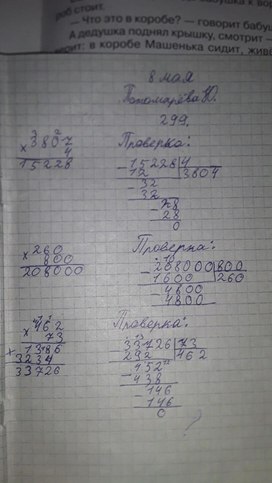 бабушка к во
роб стоит.
— Что это в коробе? — говорит бабу
А дедушка поднял крышку, смотрит —
дит: в коробе Машенька сидит, жив
8 мая
Пономарёва Ю.
299.
Проверка:
3 2
× 3807
4
15228
15228 | 4
12 | 3807
32
32
28
28
0
× 260
800
208000
Проверка:
208000 | 800
1600 | 260
4800
4800
0
× 462
73
+ 1386
3234
33726
Проверка:
33726 | 73
292 | 462
452
438
146
146
0
?